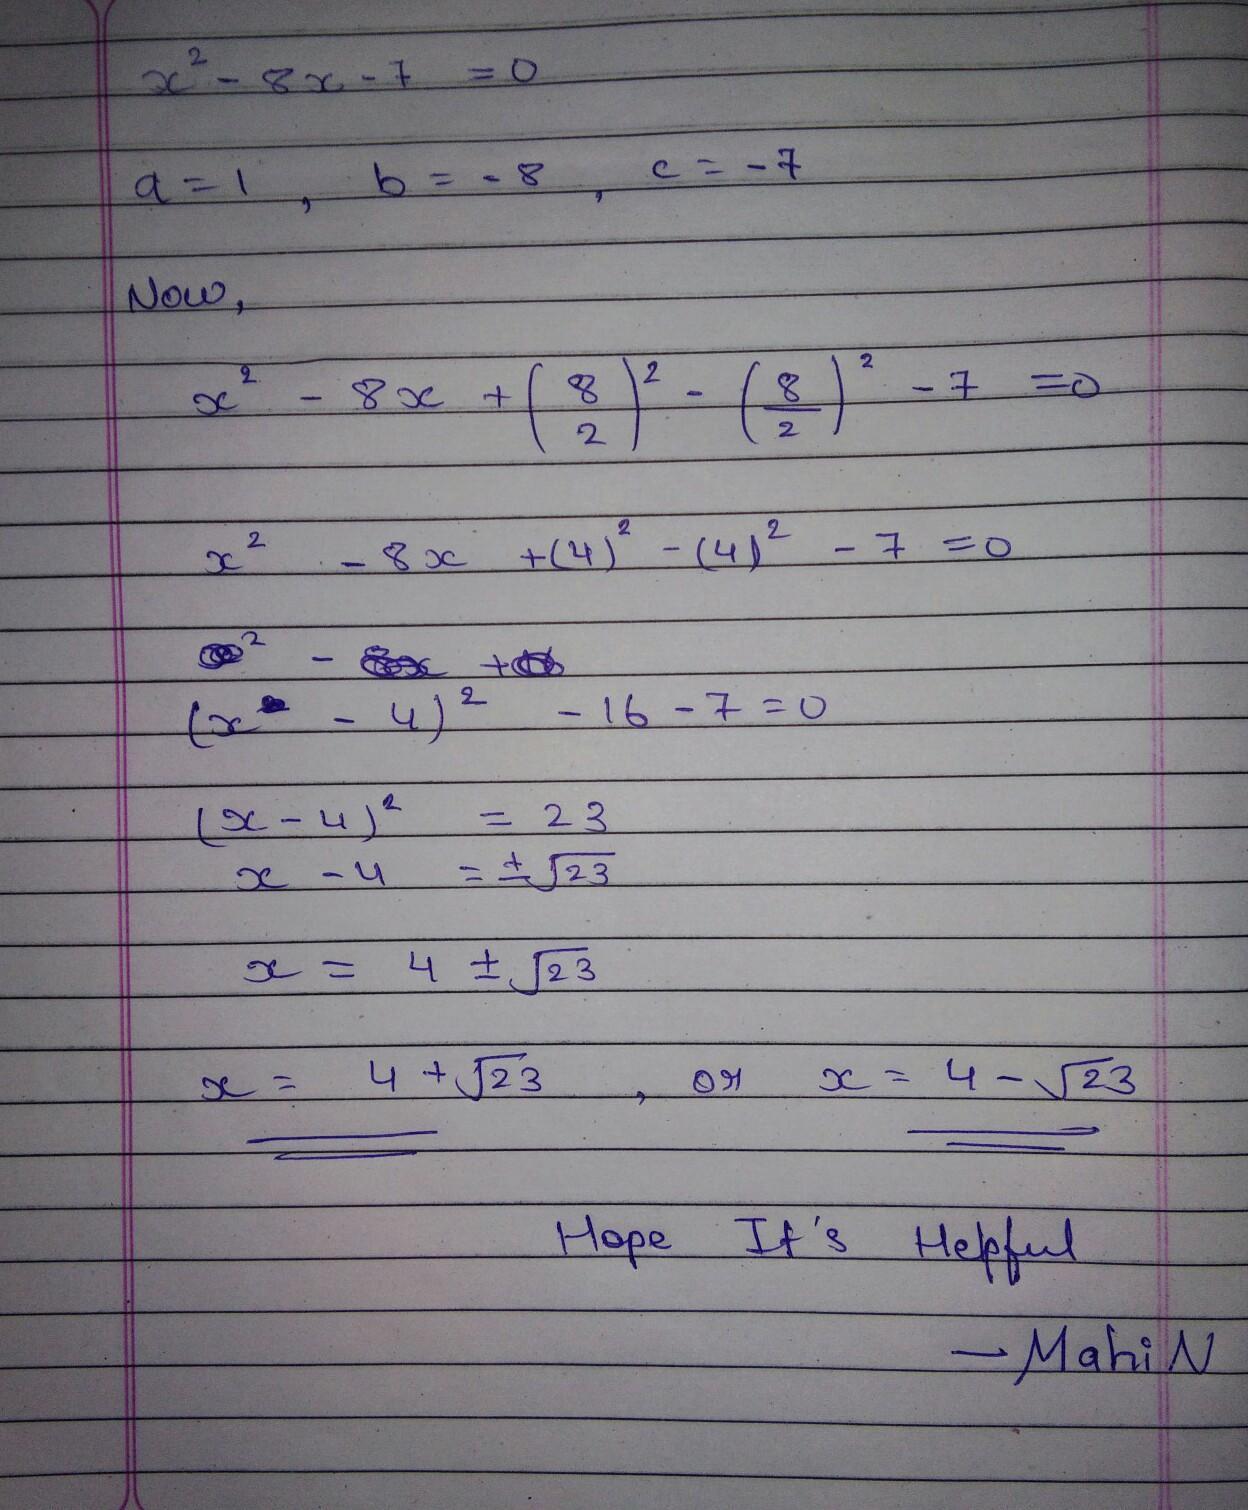 x² - 8x - 7 = 0
a = 1 , b = - 8 , c = - 7
Now,
x² - 8x + (8/2)² - (8/2)² - 7 = 0
x² - 8x + (4)² - (4)² - 7 = 0
(x - 4)² - 16 - 7 = 0
(x - 4)² = 23
x - 4 = ± √23
x = 4 ± √23
x = 4 + √23 , or x = 4 - √23
Hope It's Helpful
— Mahi N